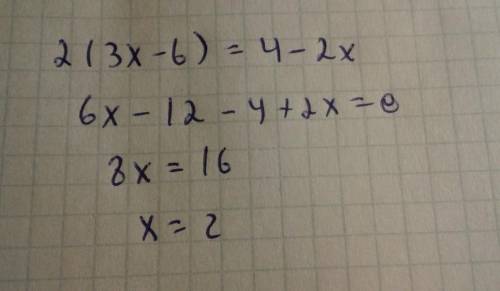 2(3x-6) = 4-2x
6x-12-4+2x=0
8x = 16
x = 2